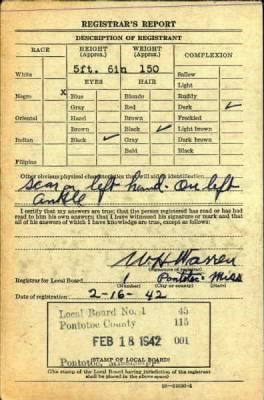 REGISTRAR'S REPORT
DESCRIPTION OF REGISTRANT
RACE HEIGHT (Approx.) WEIGHT (Approx.) COMPLEXION
White 5ft. 6in 150 Sallow
EYES HAIR Light
Negro x Blue Blonde Ruddy
Gray Red Dark ✓
Oriental Hazel Brown Freckled
Brown Black ✓ Light brown
Indian Black ✓ Gray Dark brown
Bald Black
Filipino
Other obvious physical characteristics that will aid in identification
Scar on left hand. On left
ankle
I certify that my answers are true; that the person registered has read or has had
read to him his own answers; that I have witnessed his signature or mark and that
all of his answers of which I have knowledge are true, except as follows:
W H Warren
(Signature of registrar)
Registrar for Local Board 1 Pontotoc Miss
(Number) (City or county) (State)
Date of registration 2-16-42
Local Board No. 1 43
Pontotoc County 115
FEB 18 1942 001
Pontotoc, Mississippi
(STAMP OF LOCAL BOARD)
(The stamp of the Local Board having jurisdiction of the registrant
shall be placed in the above space)